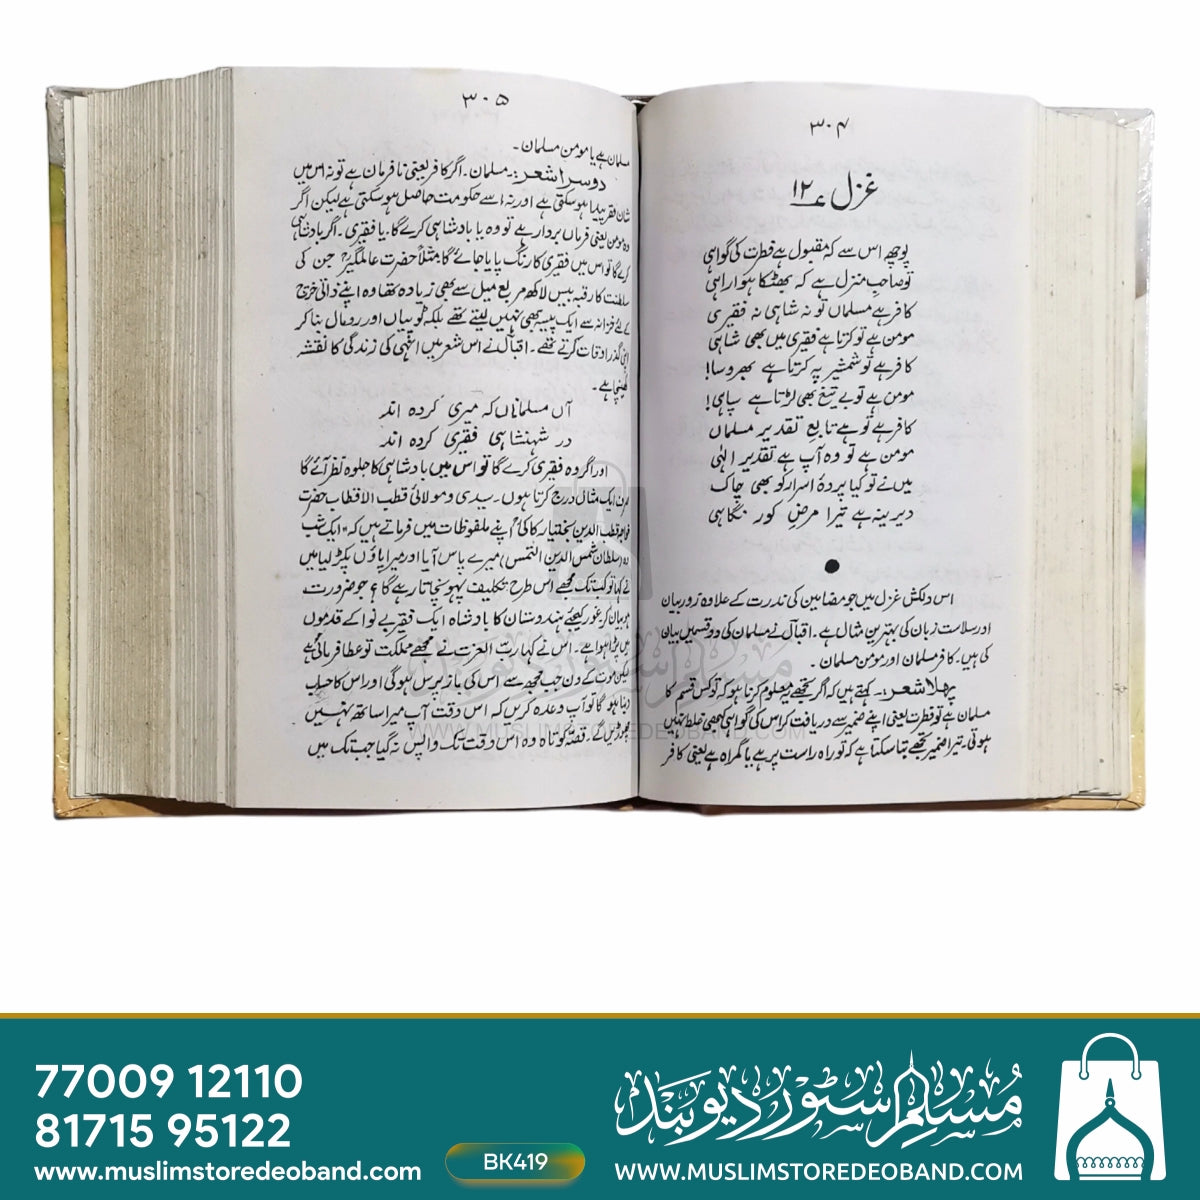 ۳۰۴
غزل ۱۲
پوچھ اس سے کہ مقبول ہے فطرت کی گواہی
تو صاحبِ منزل ہے کہ بھٹکا ہوا راہی
کافر ہے مسلماں تو نہ شاہی نہ فقیری
مومن ہے تو کرتا ہے فقیری میں بھی شاہی
کافر ہے تو شمشیر پہ کرتا ہے بھروسا!
مومن ہے تو بے تیغ بھی لڑتا ہے سپاہی!
کافر ہے تو ہے تابع تقدیر مسلماں
مومن ہے تو وہ آپ ہے تقدیر الٰہی
میں نے تو کیا پردۂ اسرار کو بھی چاک
دیرینہ ہے تیرا مرضِ کور نگاہی
اس دلکش غزل میں جو مضامین کی ندرت کے علاوہ زور بیان
اور سلاست زبان کی بہترین مثال ہے۔ اقبالؔ نے مسلمان کی دو قسمیں بیان
کی ہیں۔ کافر مسلمان اور مومن مسلمان۔
پہلا شعر:۔ کہتے ہیں کہ اگر تجھے یہ معلوم کرنا ہو کہ تو کس قسم کا
مسلمان ہے تو فطرت یعنی اپنے ضمیر سے دریافت کر اس کی گواہی کبھی غلط نہیں
ہوتی۔ تیرا ضمیر تجھے بتا سکتا ہے کہ تو راہ راست پر ہے یا گمراہ ہے یعنی کافر
۳۰۵
مسلمان ہے یا مومن مسلمان۔
دوسرا شعر:۔ مسلمان۔ اگر کافر یعنی نافرمان ہے تو نہ اس میں
شان فقر پیدا ہو سکتی ہے اور نہ اسے حکومت حاصل ہو سکتی ہے لیکن اگر
وہ مومن یعنی فرماں بردار ہے تو وہ یا بادشاہی کرے گا۔ یا فقیری۔ اگر بادشاہی
کرے گا تو اس میں فقیری کا رنگ پایا جائے گا۔ مثلاً حضرت عالمگیرؒ جن کی
سلطنت کا رقبہ بیس لاکھ مربع میل سے بھی زیادہ تھا وہ اپنے ذاتی خرچ
کے لئے خزانہ سے ایک پیسہ بھی نہیں لیتے تھے بلکہ ٹوپیاں اور رومال بنا کر
اپنی گذر اوقات کرتے تھے۔ اقبالؔ نے اس شعر میں انہی کی زندگی کا نقشہ
کھینچا ہے۔
آں مسلماناں کہ میری کردہ اند
در شہنشاہی فقیری کردہ اند
اور اگر وہ فقیری کرے گا تو اس میں بادشاہی کا جلوہ نظر آئے گا
صرف ایک مثال درج کرتا ہوں۔ سیدی و مولائی قطب الاقطاب حضرت
خواجہ قطب الدین بختیار کاکیؒ اپنے ملفوظات میں فرماتے ہیں کہ "ایک شب
وہ (سلطان شمس الدین التمش) میرے پاس آیا اور میرا پاؤں پکڑ لیا میں
نے کہا تو کب تک مجھے اس طرح تکلیف پہونچاتا رہے گا؟ جو ضرورت
ہو بیان کر غور کیجئے ہندوستان کا بادشاہ ایک فقیر بے نوا کے قدموں
میں پڑا ہوا ہے۔ اس نے کہا رب العزت نے مجھے مملکت تو عطا فرمائی ہے
لیکن موت کے دن جب مجھ سے اس کی باز پرس ہوگی اور اس کا حساب
دینا ہو گا تو آپ وعدہ کریں کہ اس وقت آپ میرا ساتھ نہیں
چھوڑیں گے۔ قصہ کوتاہ وہ اس وقت تک واپس نہ گیا جب تک میں
مسلم سٹور دیوبند
WWW.MUSLIMSTOREDEOBAND.COM
77009 12110
81715 95122
www.muslimstoredeoband.com
BK419
مسلم سٹور دیوبند
WWW.MUSLIMSTOREDEOBAND.COM